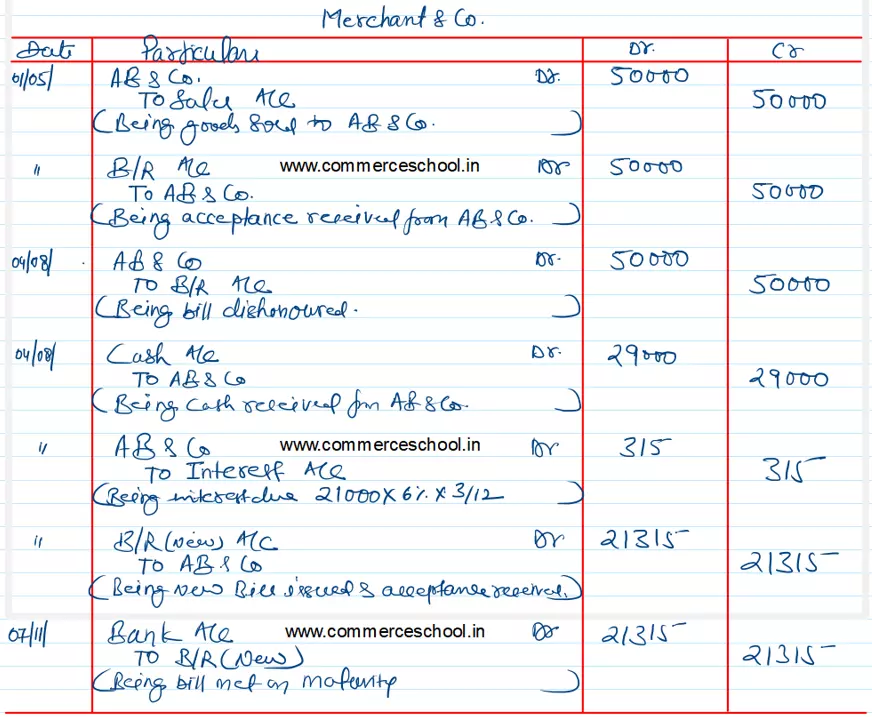 Merchant & Co.
Date Particulars Dr. Cr
01/05/ AB & Co. Dr. 50000
To Sales A/c 50000
(Being goods sold to AB & Co. )
" B/R A/c www.commerceschool.in Dr 50000
To AB & Co. 50000
(Being acceptance received from AB & Co. )
04/08/ AB & Co Dr. 50000
To B/R A/c 50000
(Being bill dishonoured. )
04/08/ Cash A/c Dr. 29000
To AB & Co 29000
(Being Cash received from AB & Co. )
" AB & Co www.commerceschool.in Dr 315
To Interest A/c 315
(Being interest due 21000 X 6% X 3/12 )
" B/R (New) A/c Dr 21315
To AB & Co 21315
(Being New Bill issued & acceptance received.)
07/11/ Bank A/c www.commerceschool.in Dr 21315
To B/R (New) 21315
(Being bill met on maturity )